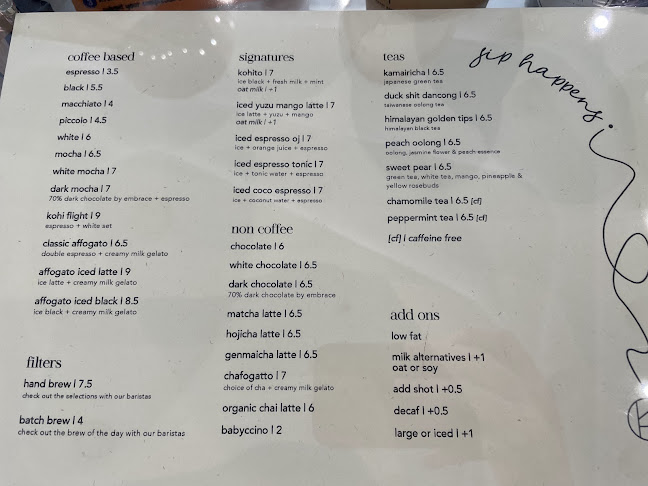 coffee based
espresso | 3.5
black | 5.5
macchiato | 4
piccolo | 4.5
white | 6
mocha | 6.5
white mocha | 7
dark mocha | 7
70% dark chocolate by embrace + espresso
kohi flight | 9
espresso + white set
classic affogato | 6.5
double espresso + creamy milk gelato
affogato iced latte | 9
ice latte + creamy milk gelato
affogato iced black | 8.5
ice black + creamy milk gelato
filters
hand brew | 7.5
check out the selections with our baristas
batch brew | 4
check out the brew of the day with our baristas
signatures
kohito | 7
ice black + fresh milk + mint
oat milk | +1
iced yuzu mango latte | 7
ice latte + yuzu + mango
oat milk | +1
iced espresso oj | 7
ice + orange juice + espresso
iced espresso tonic | 7
ice + tonic water + espresso
iced coco espresso | 7
ice + coconut water + espresso
non coffee
chocolate | 6
white chocolate | 6.5
dark chocolate | 6.5
70% dark chocolate by embrace
matcha latte | 6.5
hojicha latte | 6.5
genmaicha latte | 6.5
chafogatto | 7
choice of cha + creamy milk gelato
organic chai latte | 6
babyccino | 2
teas
kamairicha | 6.5
japanese green tea
duck shit dancong | 6.5
taiwanese oolong tea
himalayan golden tips | 6.5
himalayan black tea
peach oolong | 6.5
oolong, jasmine flower & peach essence
sweet pear | 6.5
green tea, white tea, mango, pineapple &
yellow rosebuds
chamomile tea | 6.5 [cf]
peppermint tea | 6.5 [cf]
[cf] | caffeine free
add ons
low fat
milk alternatives | +1
oat or soy
add shot | +0.5
decaf | +0.5
large or iced | +1
sip happens.